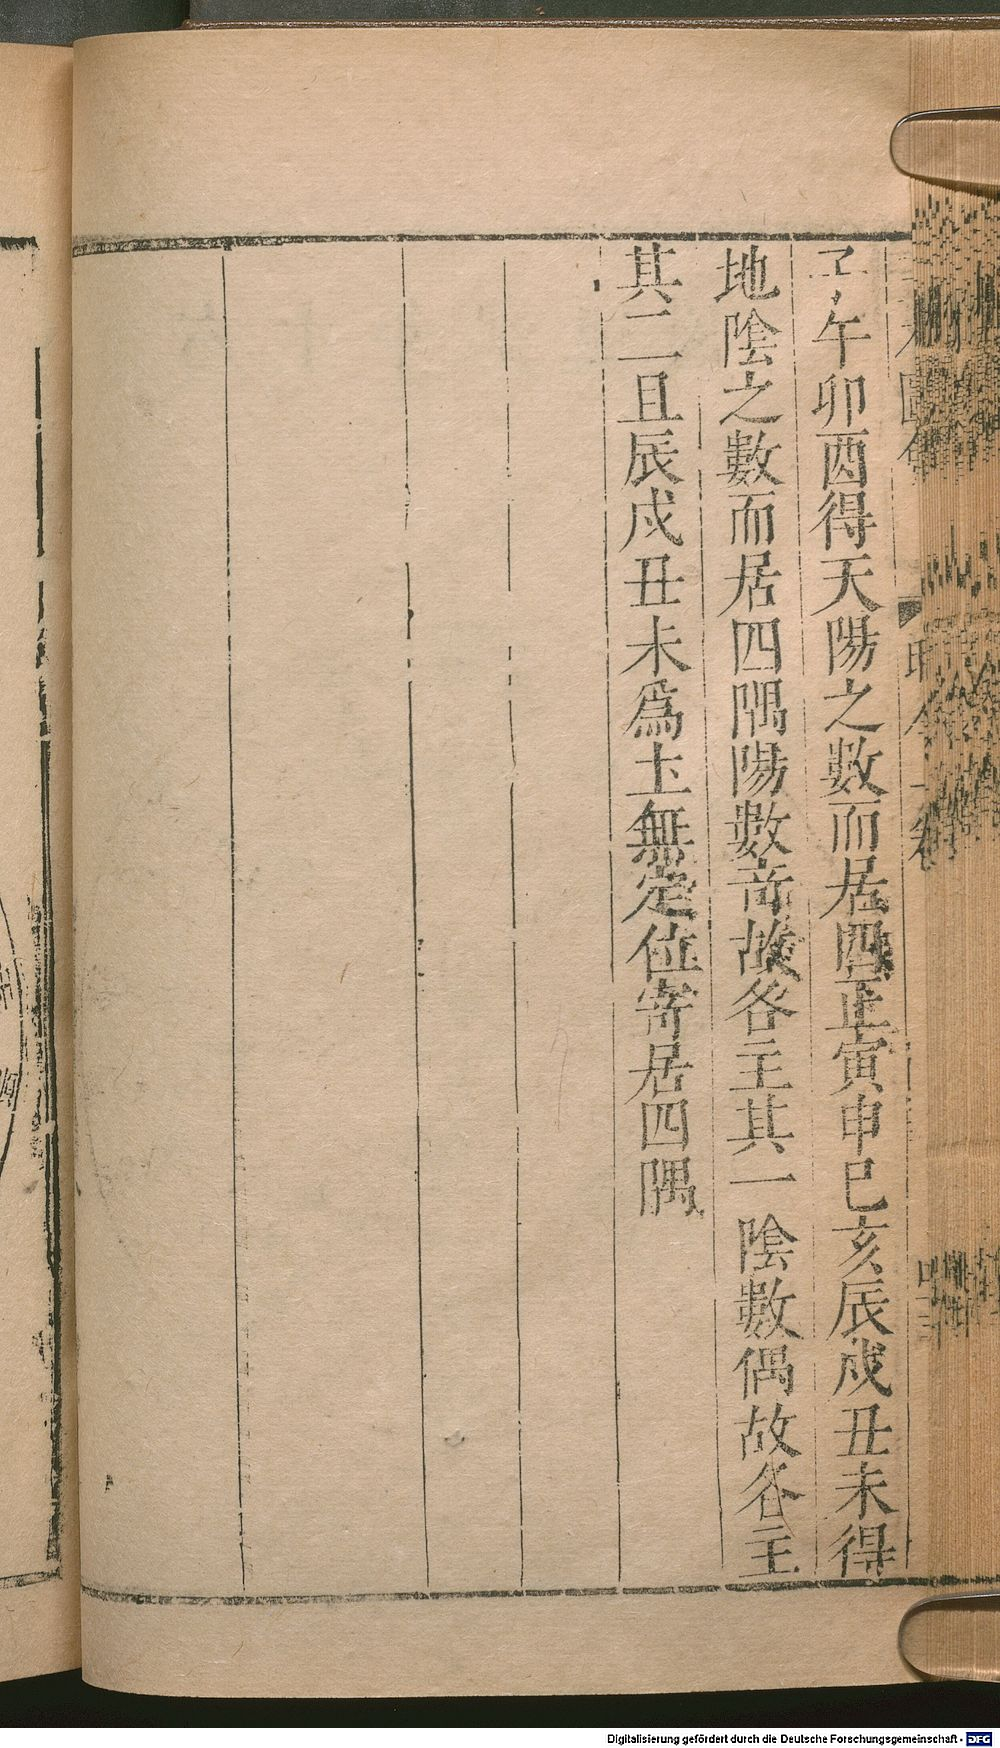 子午卯酉得天陽之數而居四正寅申巳亥辰戌丑未得
地陰之數而居四隅陽數竒故各主其一陰數偶故各主
其二且辰戌丑未爲土無定位寄居四隅
Digitalisierung gefördert durch die Deutsche Forschungsgemeinschaft - DFG